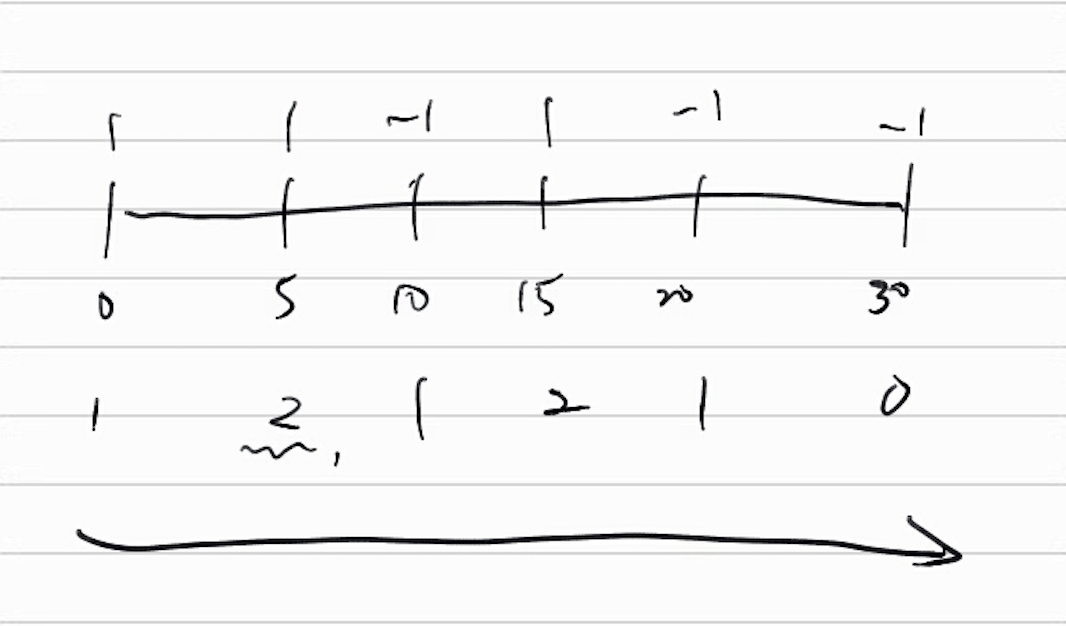 1 1 -1 1 -1 -1
0 5 10 15 20 30
1 2 1 2 1 0